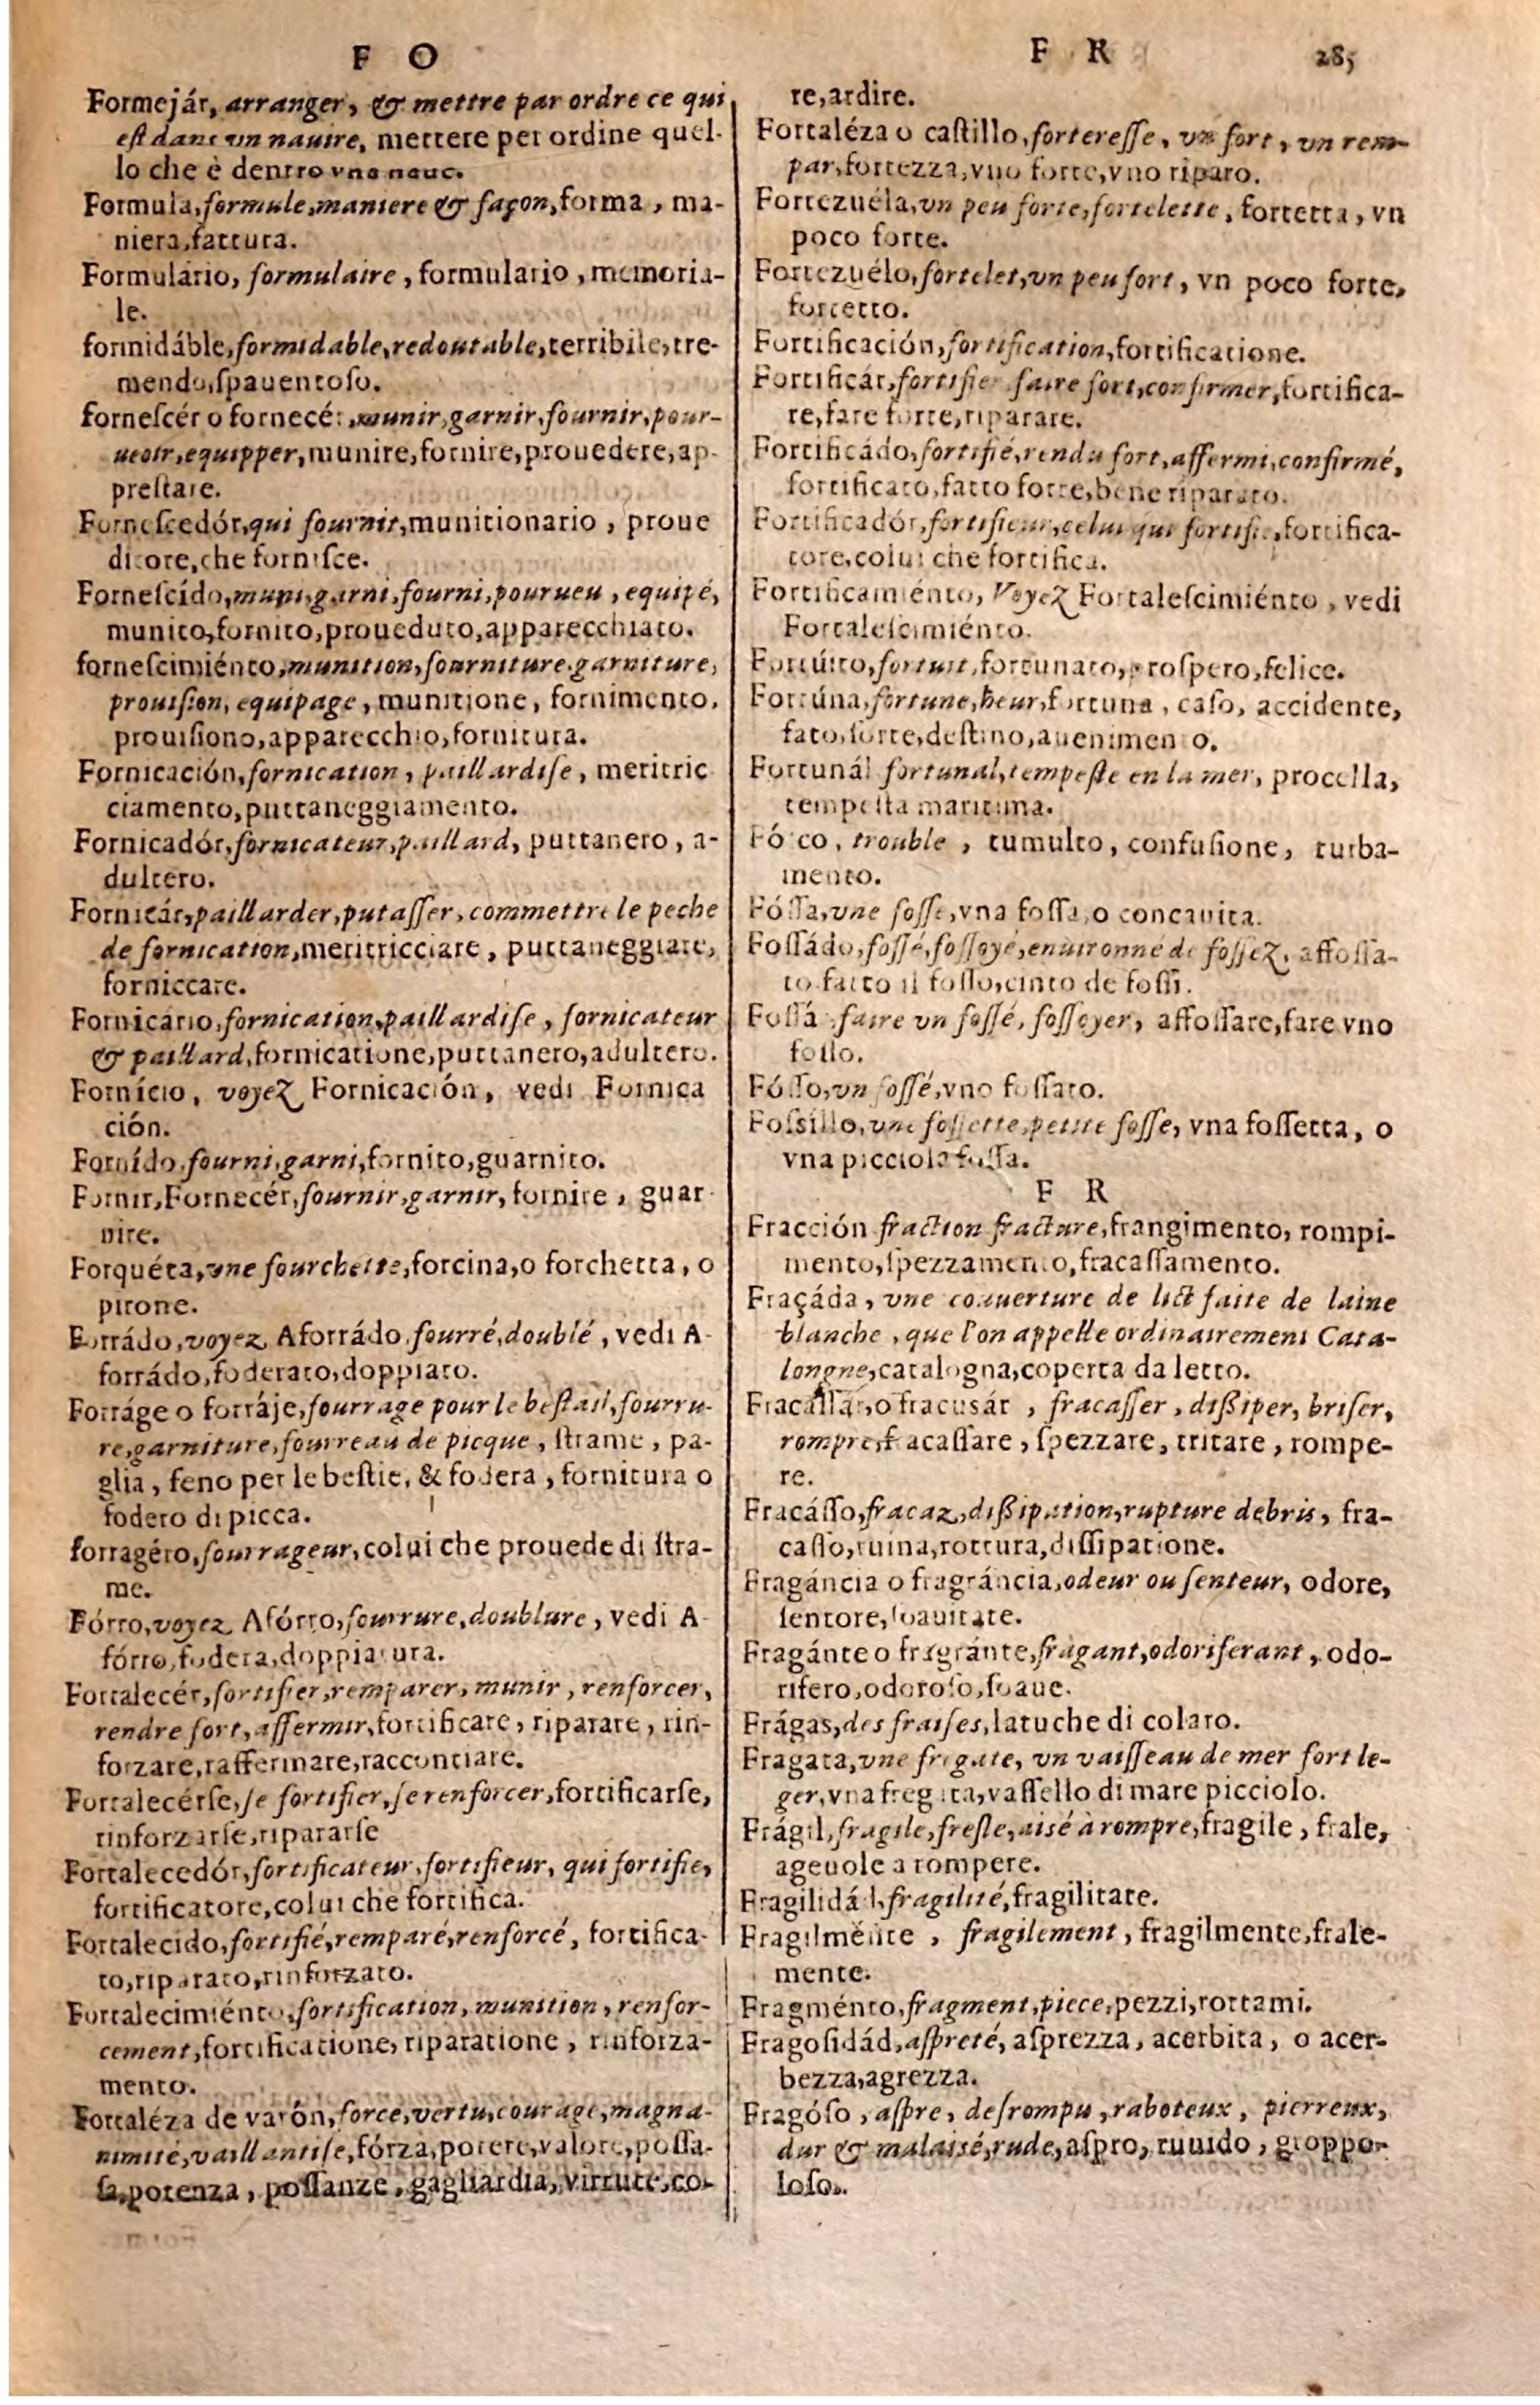 F O
Formejár, arranger, & mettre par ordre ce qui
est dans vn nauire, mettere per ordine quel-
lo che è dentro vna naue.
Formula, formule, maniere & façon, forma, ma-
niera, fattura.
Formulário, formulaire, formulario, memoria-
le.
formidáble, formidable, redoutable, terribile, tre-
mendo, spauentoso.
fornescér o fornecér, munir, garnir, fournir, pour-
ueoir, equipper, munire, fornire, prouedere, ap-
prestare.
Fornescedór, qui fournit, munitionario, proue
ditore, che fornisce.
Fornescído, muni, garni, fourni, pourueu, equipé,
munito, fornito, proueduto, apparecchiato.
fornescimiénto, munition, fourniture, garniture,
prouision, equipage, munitione, fornimento,
prouisiono, apparecchio, fornitura.
Fornicación, fornication, paillardise, meritric
ciamento, puttaneggiamento.
Fornicadór, fornicateur, paillard, puttanero, a-
dultero.
Fornicár, paillarder, putasser, commettre le peche
de fornication, meritricciare, puttaneggiare,
forniccare.
Fornicario, fornication, paillardise, fornicateur
& paillard, fornicatione, puttanero, adultero.
Fornício, voyez Fornicación, vedi Fornica
ción.
Fornído, fourni, garni, fornito, guarnito.
Fornir, Fornecér, fournir, garnir, fornire, guar
nire.
Forquéta, vne fourchette, forcina, o forchetta, o
pirone.
Forrádo, voyez Aforrádo, fourré, doublé, vedi A-
forrádo, foderato, doppiato.
Forráge o forráje, fourrage pour le bestail, fourru-
re, garniture, fourreau de picque, strame, pa-
glia, feno per le bestie, & fodera, fornitura o
fodero di picca.
forragéro, fourrageur, colui che prouede di stra-
me.
Fórro, voyez Afórro, fourrure, doublure, vedi A-
fórro, fodera, doppiatura.
Fortalecér, fortifier, remparer, munir, renforcer,
rendre fort, affermir, fortificare, riparare, rin-
forzare, raffermare, racconciare.
Fortalecérse, se fortifier, se renforcer, fortificarse,
rinforzarse, ripararse
Fortalecedór, fortificateur, fortifieur, qui fortifie,
fortificatore, colui che fortifica.
Fortalecido, fortifié, remparé, renforcé, fortifica-
to, riparato, rinforzato.
Fortalecimiénto, fortification, munition, renfor-
cement, fortificatione, riparatione, rinforza-
mento.
Fortaléza de varón, force, vertu, courage, magna-
nimité, vaillantise, fórza, potere, valore, possa-
sa, potenza, possanze, gagliardia, virtute, co-
F R 285
re, ardire.
Fortaléza o castillo, forteresse, vn fort, vn rem-
par, fortezza, vno forte, vno riparo.
Fortezuéla, vn peu forte, fortelette, fortetta, vn
poco forte.
Fortezuélo, fortelet, vn peu fort, vn poco forte,
fortetto.
Fortificación, fortification, fortificatione.
Fortificár, fortifier, faire fort, confirmer, fortifica-
re, fare forte, riparare.
Fortificádo, fortifié, rendu fort, affermi, confirmé,
fortificato, fatto forte, bene riparato.
Fortificadór, fortifieur, celui qui fortifie, fortifica-
tore, colui che fortifica.
Fortificamiénto, Voyez Fortalescimiénto, vedi
Fortalescimiénto.
Fortúito, fortuit, fortunato, prospero, felice.
Fortúna, fortune, heur, fortuna, caso, accidente,
fato, sorte, destino, auenimento.
Fortunál fortunal, tempeste en la mer, procella,
tempesta maritima.
Fó co, trouble, tumulto, confusione, turba-
mento.
Fóssa, vne fosse, vna fossa, o concauita.
Fossádo, fossé, fossoyé, enuironné de fossez, affossa-
to fatto il fosso, cinto de fossi.
Fossá faire vn fossé, fossoyer, affossare, fare vno
fosso.
Fósso, vn fossé, vno fossato.
Fossíllo, vne fossette, petite fosse, vna fossetta, o
vna picciola fossa.
F R
Fracción fraction fracture, frangimento, rompi-
mento, spezzamento, fracassamento.
Fraçáda, vne couuerture de lict faite de laine
blanche, que l'on appelle ordinairement Cata-
longne, catalogna, coperta da letto.
Fracassár, o fracusár, fracasser, dissiper, briser,
rompre, fracassare, spezzare, tritare, rompe-
re.
Fracásso, fracaz, dissipation, rupture debris, fra-
casso, ruina, rottura, dissipatione.
Fragáncia o fragráncia, odeur ou senteur, odore,
sentore, soauitate.
Fragánte o fragránte, fragant, odoriferant, odo-
rifero, odoroso, soaue.
Frágas, des fraises, latuche di colaro.
Fragata, vne fregate, vn vaisseau de mer fort le-
ger, vna fregata, vassello di mare picciolo.
Frágil, fragile, fresle, aisé à rompre, fragile, frale,
ageuole a rompere.
Fragilidád, fragilité, fragilitate.
Fragilménte, fragilement, fragilmente, frale-
mente.
Fragménto, fragment, piece, pezzi, rottami.
Fragosidád, aspreté, asprezza, acerbita, o acer-
bezza, agrezza.
Fragóso, aspre, desrompu, raboteux, pierreux,
dur & malaisé, rude, aspro, ruuido, groppo-
loso.